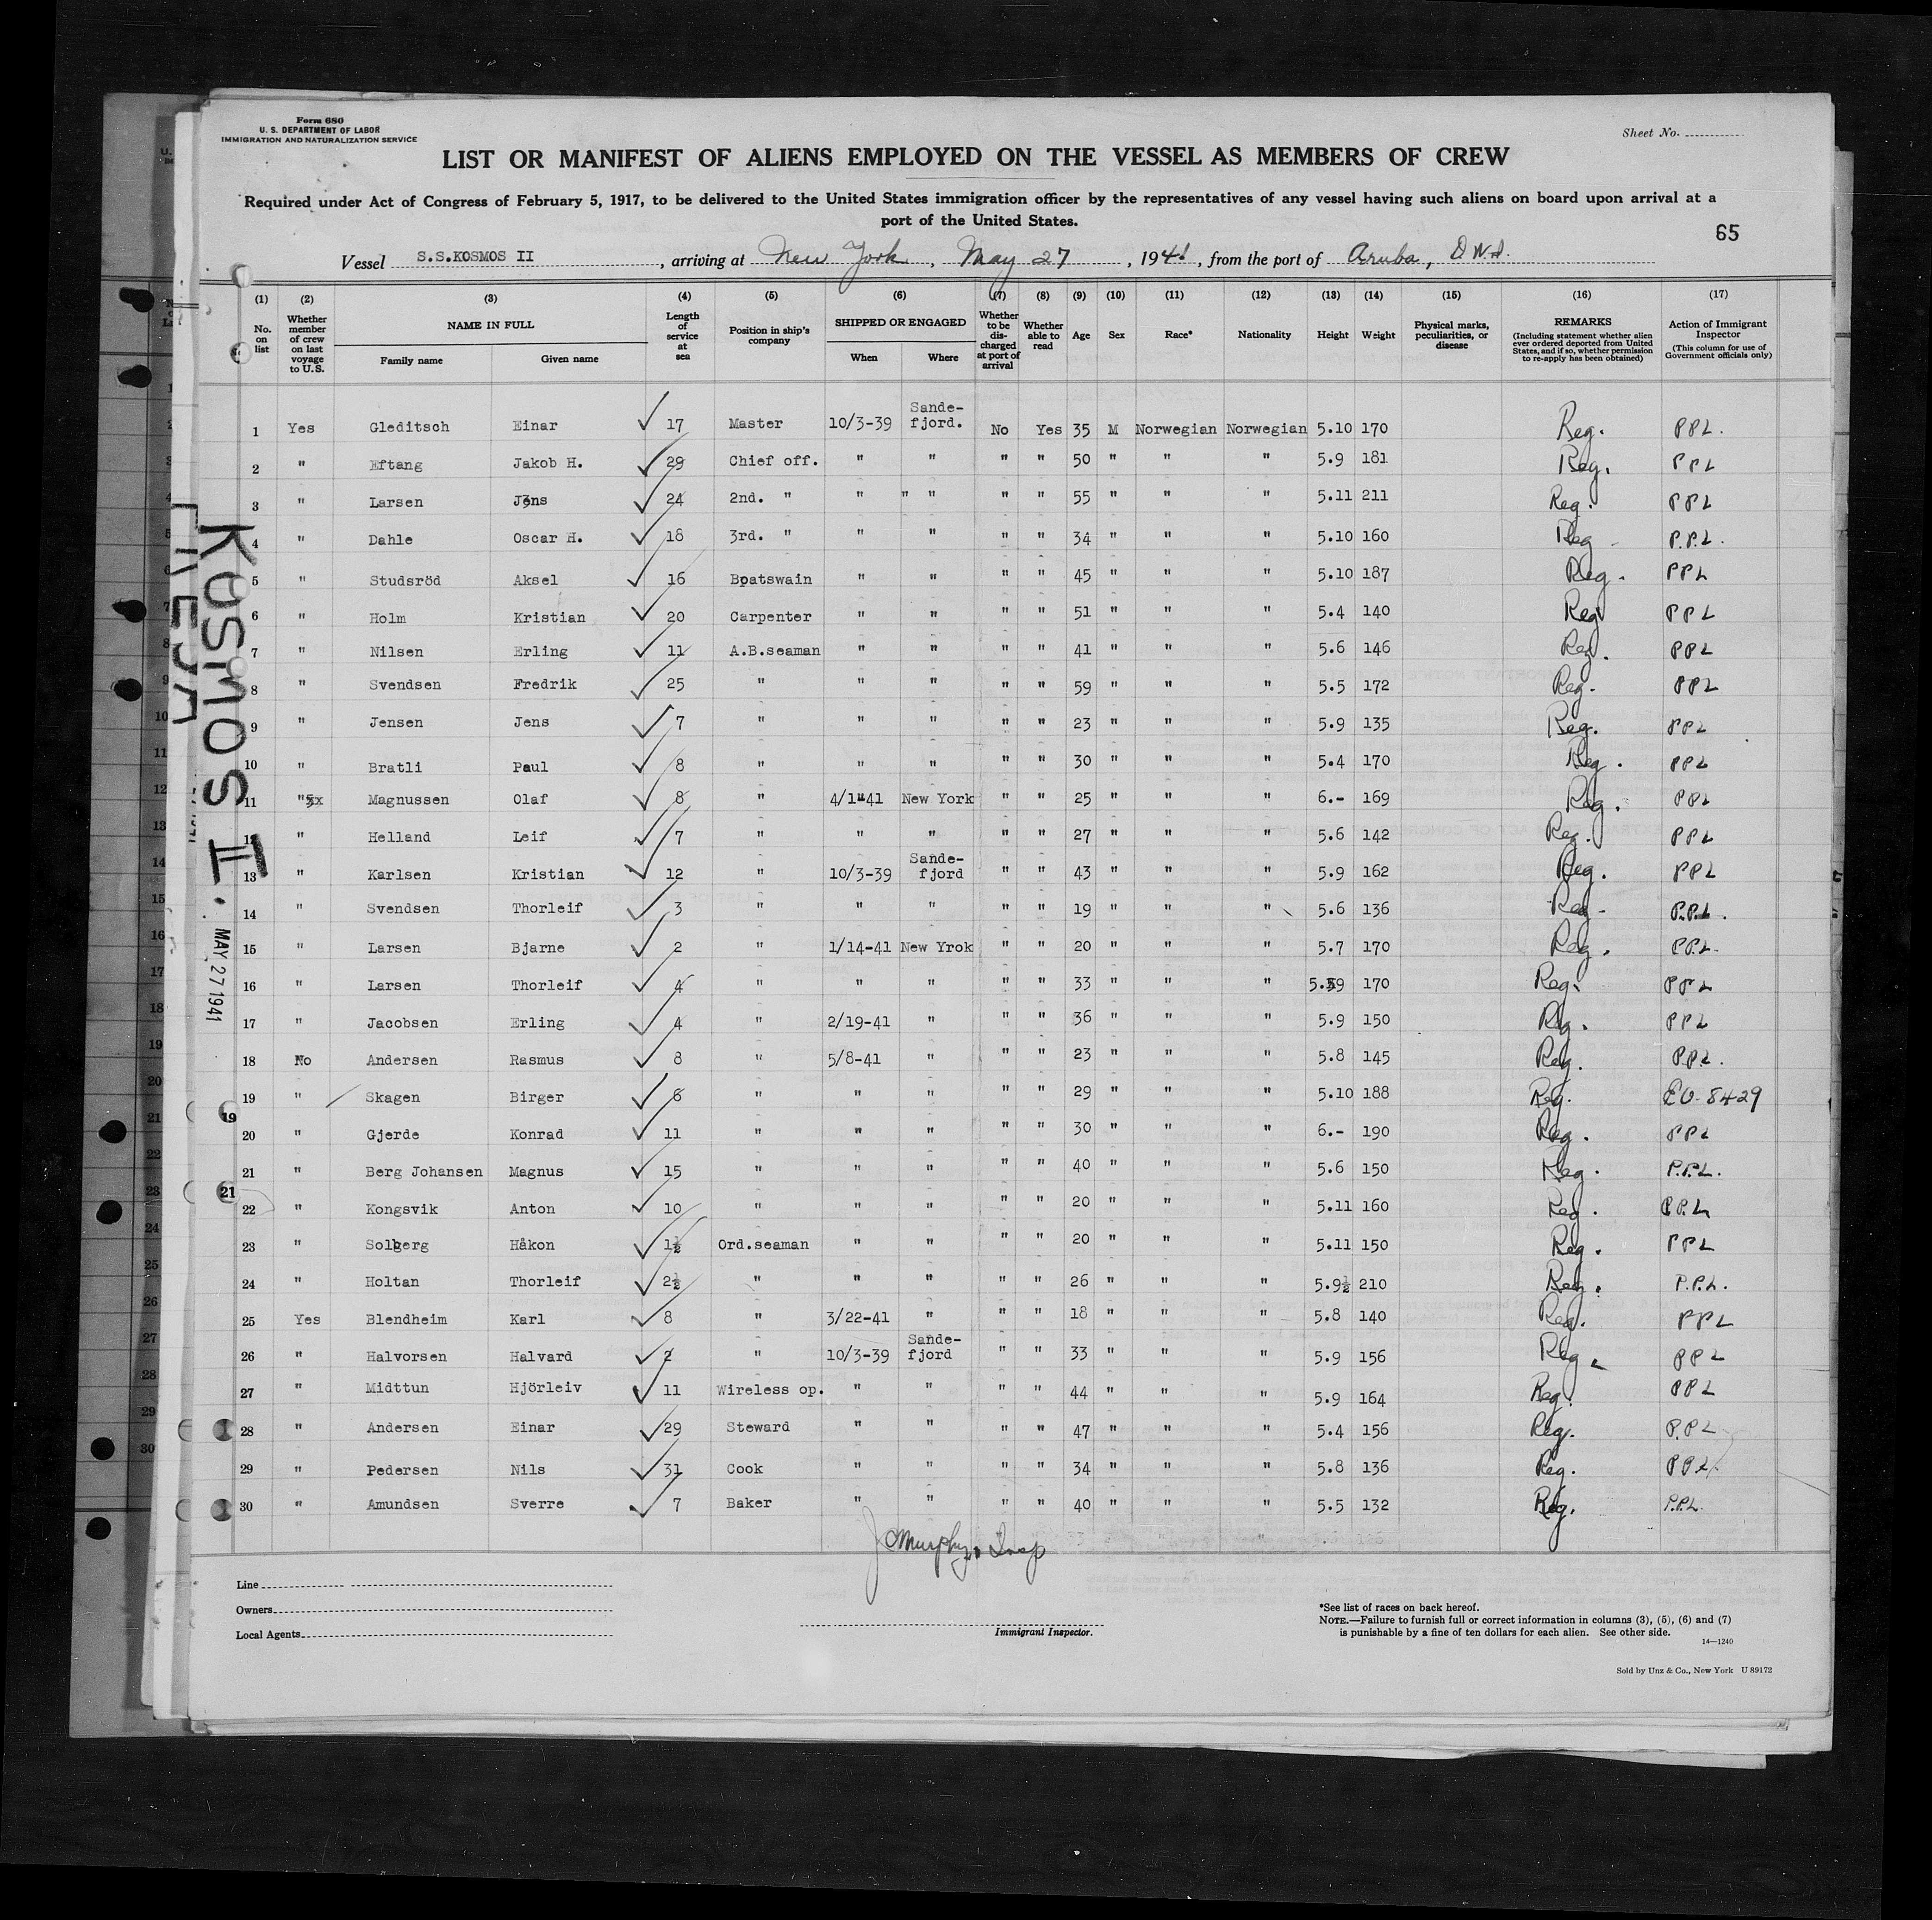 Form 680
U. S. DEPARTMENT OF LABOR
IMMIGRATION AND NATURALIZATION SERVICE
Sheet No.
LIST OR MANIFEST OF ALIENS EMPLOYED ON THE VESSEL AS MEMBERS OF CREW
Required under Act of Congress of February 5, 1917, to be delivered to the United States immigration officer by the representatives of any vessel having such aliens on board upon arrival at a
port of the United States.
65
Vessel S.S.KOSMOS II , arriving at New York , May 27 , 1941 , from the port of Aruba, D.W.I.
(1) (2) (3) (4) (5) (6) (7) (8) (9) (10) (11) (12) (13) (14) (15) (16) (17)
No. on list | Whether member of crew on last voyage to U.S. | NAME IN FULL Family name Given name | Length of service at sea | Position in ship's company | SHIPPED OR ENGAGED When Where | Whether to be discharged at port of arrival | Whether able to read | Age | Sex | Race* | Nationality | Height | Weight | Physical marks, peculiarities, or disease | REMARKS (Including statement whether alien ever ordered deported from United States, and if so, whether permission to re-apply has been obtained) | Action of Immigrant Inspector (This column for use of Government officials only)
1 Yes Gleditsch Einar 17 Master 10/3-39 Sande-fjord. No Yes 35 M Norwegian Norwegian 5.10 170 Reg. PPL.
2 " Eftang Jakob H. 29 Chief off. " " " " 50 " " " 5.9 181 Reg. PPL
3 " Larsen Jens 24 2nd. " " " " " " 55 " " " 5.11 211 Reg. PPL
4 " Dahle Oscar H. 18 3rd. " " " " " 34 " " " 5.10 160 Reg P.P.L.
5 " Studsröd Aksel 16 Boatswain " " " " 45 " " " 5.10 187 Reg. PPL
6 " Holm Kristian 20 Carpenter " " " " 51 " " " 5.4 140 Reg PPL
7 " Nilsen Erling 11 A.B.seaman " " " " 41 " " " 5.6 146 Reg. PPL
8 " Svendsen Fredrik 25 " " " " " 59 " " " 5.5 172 Reg. PPL
9 " Jensen Jens 7 " " " " " 23 " " " 5.9 135 Reg. PPL
10 " Bratli Paul 8 " " " " " 30 " " " 5.4 170 Reg. PPL
11 " Magnussen Olaf 8 " 4/1-41 New York " " 25 " " " 6.- 169 Reg. PPL
12 " Helland Leif 7 " " " " " 27 " " " 5.6 142 Reg. PPL
13 " Karlsen Kristian 12 " 10/3-39 Sande-fjord " " 43 " " " 5.9 162 Reg. PPL
14 " Svendsen Thorleif 3 " " " " " 19 " " " 5.6 136 Reg. P.P.L.
15 " Larsen Bjarne 2 " 1/14-41 New Yrok " " 20 " " " 5.7 170 Reg. P.P.L.
16 " Larsen Thorleif 4 " " " " " 33 " " " 5.9 170 Reg. PPL
17 " Jacobsen Erling 4 " 2/19-41 " " " 36 " " " 5.9 150 Reg. PPL
18 No Andersen Rasmus 8 " 5/8-41 " " " 23 " " " 5.8 145 Reg. P.P.L.
19 " Skagen Birger 6 " " " " " 29 " " " 5.10 188 Reg. EO-8429
20 " Gjerde Konrad 11 " " " " " 30 " " " 6.- 190 Reg. PPL
21 " Berg Johansen Magnus 15 " " " " " 40 " " " 5.6 150 Reg. P.P.L.
22 " Kongsvik Anton 10 " " " " " 20 " " " 5.11 160 Reg. P.P.L
23 " Solberg Håkon 1½ Ord.seaman " " " " 20 " " " 5.11 150 Reg. PPL
24 " Holtan Thorleif 2½ " " " " " 26 " " " 5.9½ 210 Reg. P.P.L.
25 Yes Blendheim Karl 8 " 3/22-41 " " " 18 " " " 5.8 140 Reg. PPL
26 " Halvorsen Halvard 2 " 10/3-39 Sande-fjord " " 33 " " " 5.9 156 Reg. PPL
27 " Midttun Hjörleiv 11 Wireless op. " " " " 44 " " " 5.9 164 Reg. PPL
28 " Andersen Einar 29 Steward " " " " 47 " " " 5.4 156 Reg. P.P L
29 " Pedersen Nils 31 Cook " " " " 34 " " " 5.8 136 Reg. PPL.
30 " Amundsen Sverre 7 Baker " " " " 40 " " " 5.5 132 Reg. P.P.L.
J Murphy, Insp
Line
Owners
Local Agents
Immigrant Inspector.
*See list of races on back hereof.
NOTE.—Failure to furnish full or correct information in columns (3), (5), (6) and (7)
is punishable by a fine of ten dollars for each alien. See other side.
14—1240
Sold by Unz & Co., New York U 89172
KOSMOS II.
MAY 27 1941
19
21